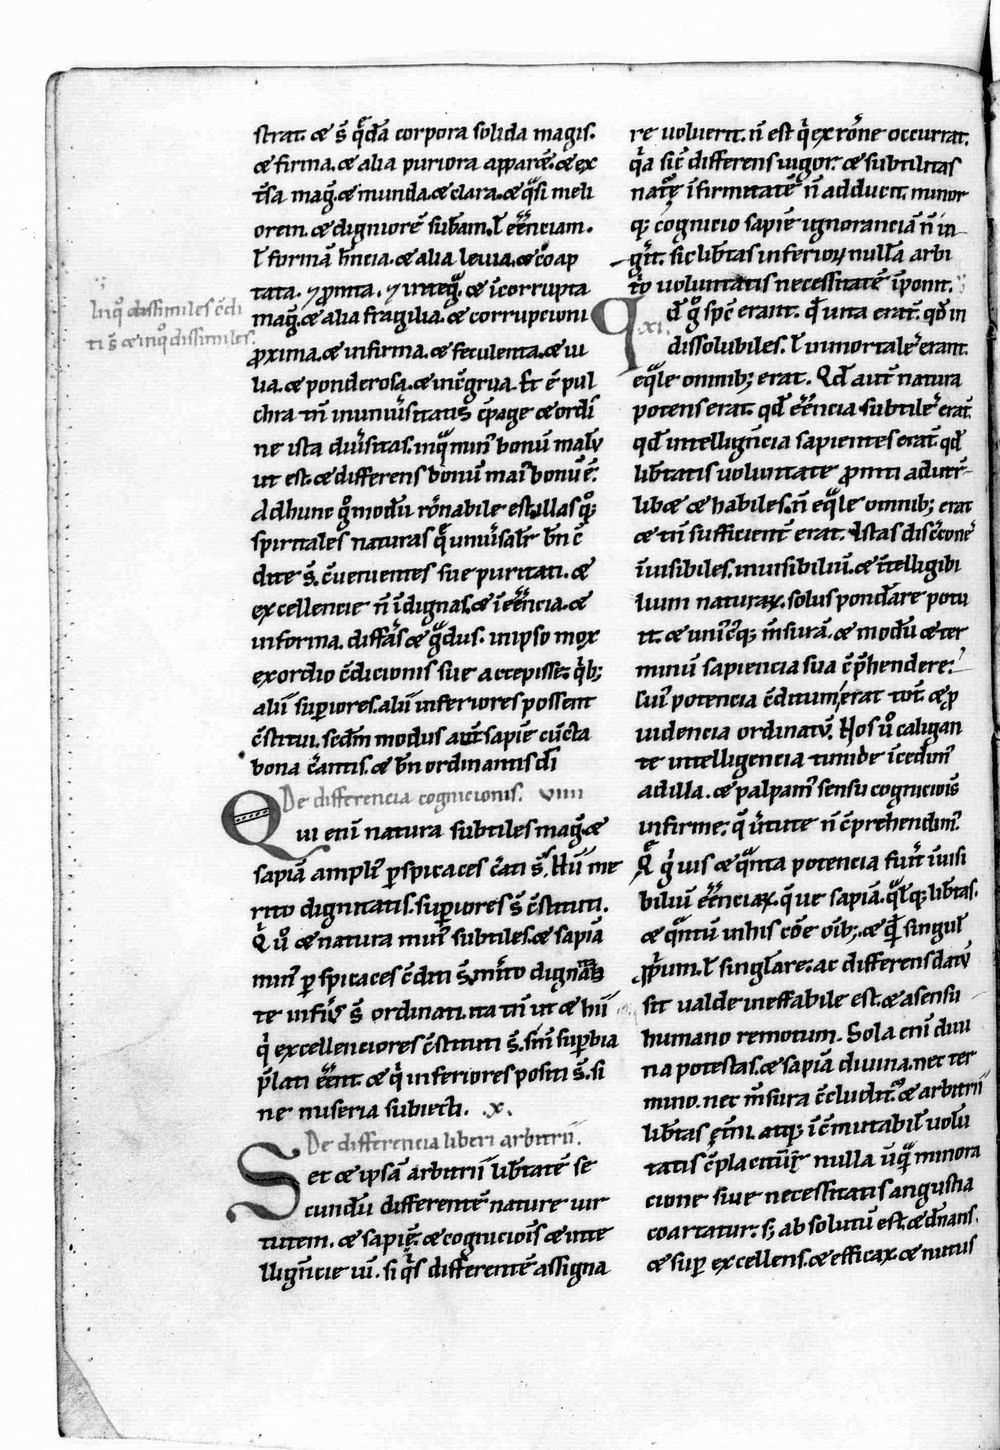 strat. & s̄ q̄dā corpora solida magis.
& firma. & alia puriora apparē. & ex
t̄sa mag̅. & munda. & clara. & q̄si meli
orem. & digniorē sub̄am. ł eēnciam.
ł formā h̄ncia. & alia leuia. & coap
tata. ⁊ p̄mta. ⁊ integ̅. & īcorrupta
mag̅. & alia fragilia. & corrupcioni
ꝓxima. & infirma. & feculenta. & ui
lia. & ponderosa. & inēgrua. Et ē pul
chra tn̄ in uniūsitatis c̄page & ordi
ne ista diūsitas. in qua min̕ bonū malū
ut est. & differens bonū mai̕ bonū ē.
Ad hunc g̊ modū rōnabile est. illas q̊q;
spiritales naturas q̄ uniūsalr̄ bn̄ c̄
dite s̄. c̄uenientes sue puritati. &
excellencie n̄ īdignas. & ī eēncia. &
in forma. differ̄as & g̊dus. in ipso mox
exordio c̄dicionis sue accepisse. q̄b;
alii suꝑiores. alii inferiores possent
c̄stitui. scdm̄ modus aut̄ sapiē cūcta
bona c̄antis. & bn̄ ordinantis dī
De differencia cognicionis. viiii
Qui enī natura subtiles mag̅. &
sapiā ampli̕ ꝑspicaces c̄ati s̄. Hii me
rito dignitatis. suꝑiores s̄ c̄stituti.
Q̄ ů & natura min̕ subtiles. & sapiā
min̕ ꝑspicaces c̄diti s̄. mīto dignita
te infīs̄ s̄ ordinati. ita tn̄ ut & hii
q̄ excellenciores c̄stituti s̄. sn̄ suꝑbia
p̄lati eēnt. & q̄ inferiores positi s̄. si
ne miseria subiecti. .x.
De differencia liberi arbitrii.
Set & ipsā arbitrii lib̄tatē se
cundū differentē nature uir
tutem. & sapiē. & cognicioīs & inte
llign̄cie uī. si q̄s differentē assigna
lnq̊ dissimiles c̄di
ti s̄ & inq̊ dissimiles.
re uoluerit. n̄ est q̄ ex rōne occurrat.
q̄a sic̄ differens uigor. & subtilitas
natē ī firmitatē n̄ adducit. minor
q; cognicio sapiē ignoranciā n̄ in
gīt. sic lib̄tas inferioꝝ nullā arbi
t̊o uoluntatis necessitatē īponit.
.xi. Qd̄ g̊ spc̄ erant. q̄ una erat. qd̄ in
dissolubiles. ł inmortale̕ erant.
eq̄le omnib; erat. Qd̄ aut̄ natura
potens erat. qd̄ eēncia subtile̕ erat̄.
qd̄ intellign̄cia sapientes erat̄. qd̄
lib̄tatis uoluntate ꝓmti ad ut̄r̄-
lib& & habiles. n̄ eq̄le omnib; erat
& tn̄ sufficient̄ erat. Istas disc̄cone̕
īuisibiles. inuisibiliū. & ītelligibi
lium naturaꝝ. solus pond̄are potu
it. & unicūq; m̄surā. & modū & ter
minū sapiencia sua c̄p̄hendere.
Cui̕ potencia c̄ditum erat tot̄. & ꝓ
uidencia ordinatū. Nos ů caligan
te intelligencia timide īcedim̕
ad illa. & palpam̕ sensu cognicioīs
infirme. q̄ ūtute n̄ c̄prehendim̕.
Q̄ g̊ uis & q̄nta potencia fuīt īuisi
biliū eēnciaꝝ. q̄ue sapiā. q̄lisq; lib̄tas.
& q̄ntū in his cōe oīb;. & qd̄ singuł
ꝓpīum. ł singl̄are. ac differens datū
sit ualde ineffabile est. & a sensu
humano remotum. Sola enī diui
na potestas. & sapiā diuina. nec ter
mino. nec m̄sura c̄cludit̊. & arbitrii
lib̄tas et̄ni. atq; īc̄mutabiƚ uolū
tatis c̄placitū. nulla ūq̄ minora
cione siue necessitatis angustia
coartatur. s; absolutū est. & dn̄ans.
& suꝑ excellens. & efficax & nutus